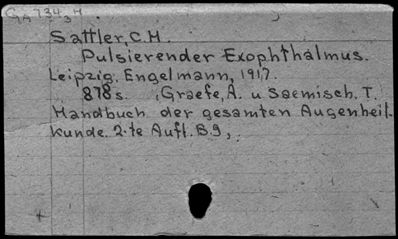 Sattler, C.H.
Pulsierender Exophthalmus.
Leipzig, Engelmann, 1917.
878 s. (Graefe, A. u Saemisch, T.
Handbuch der gesamten Augenheil-
kunde. 2.te Aufl. B.9,